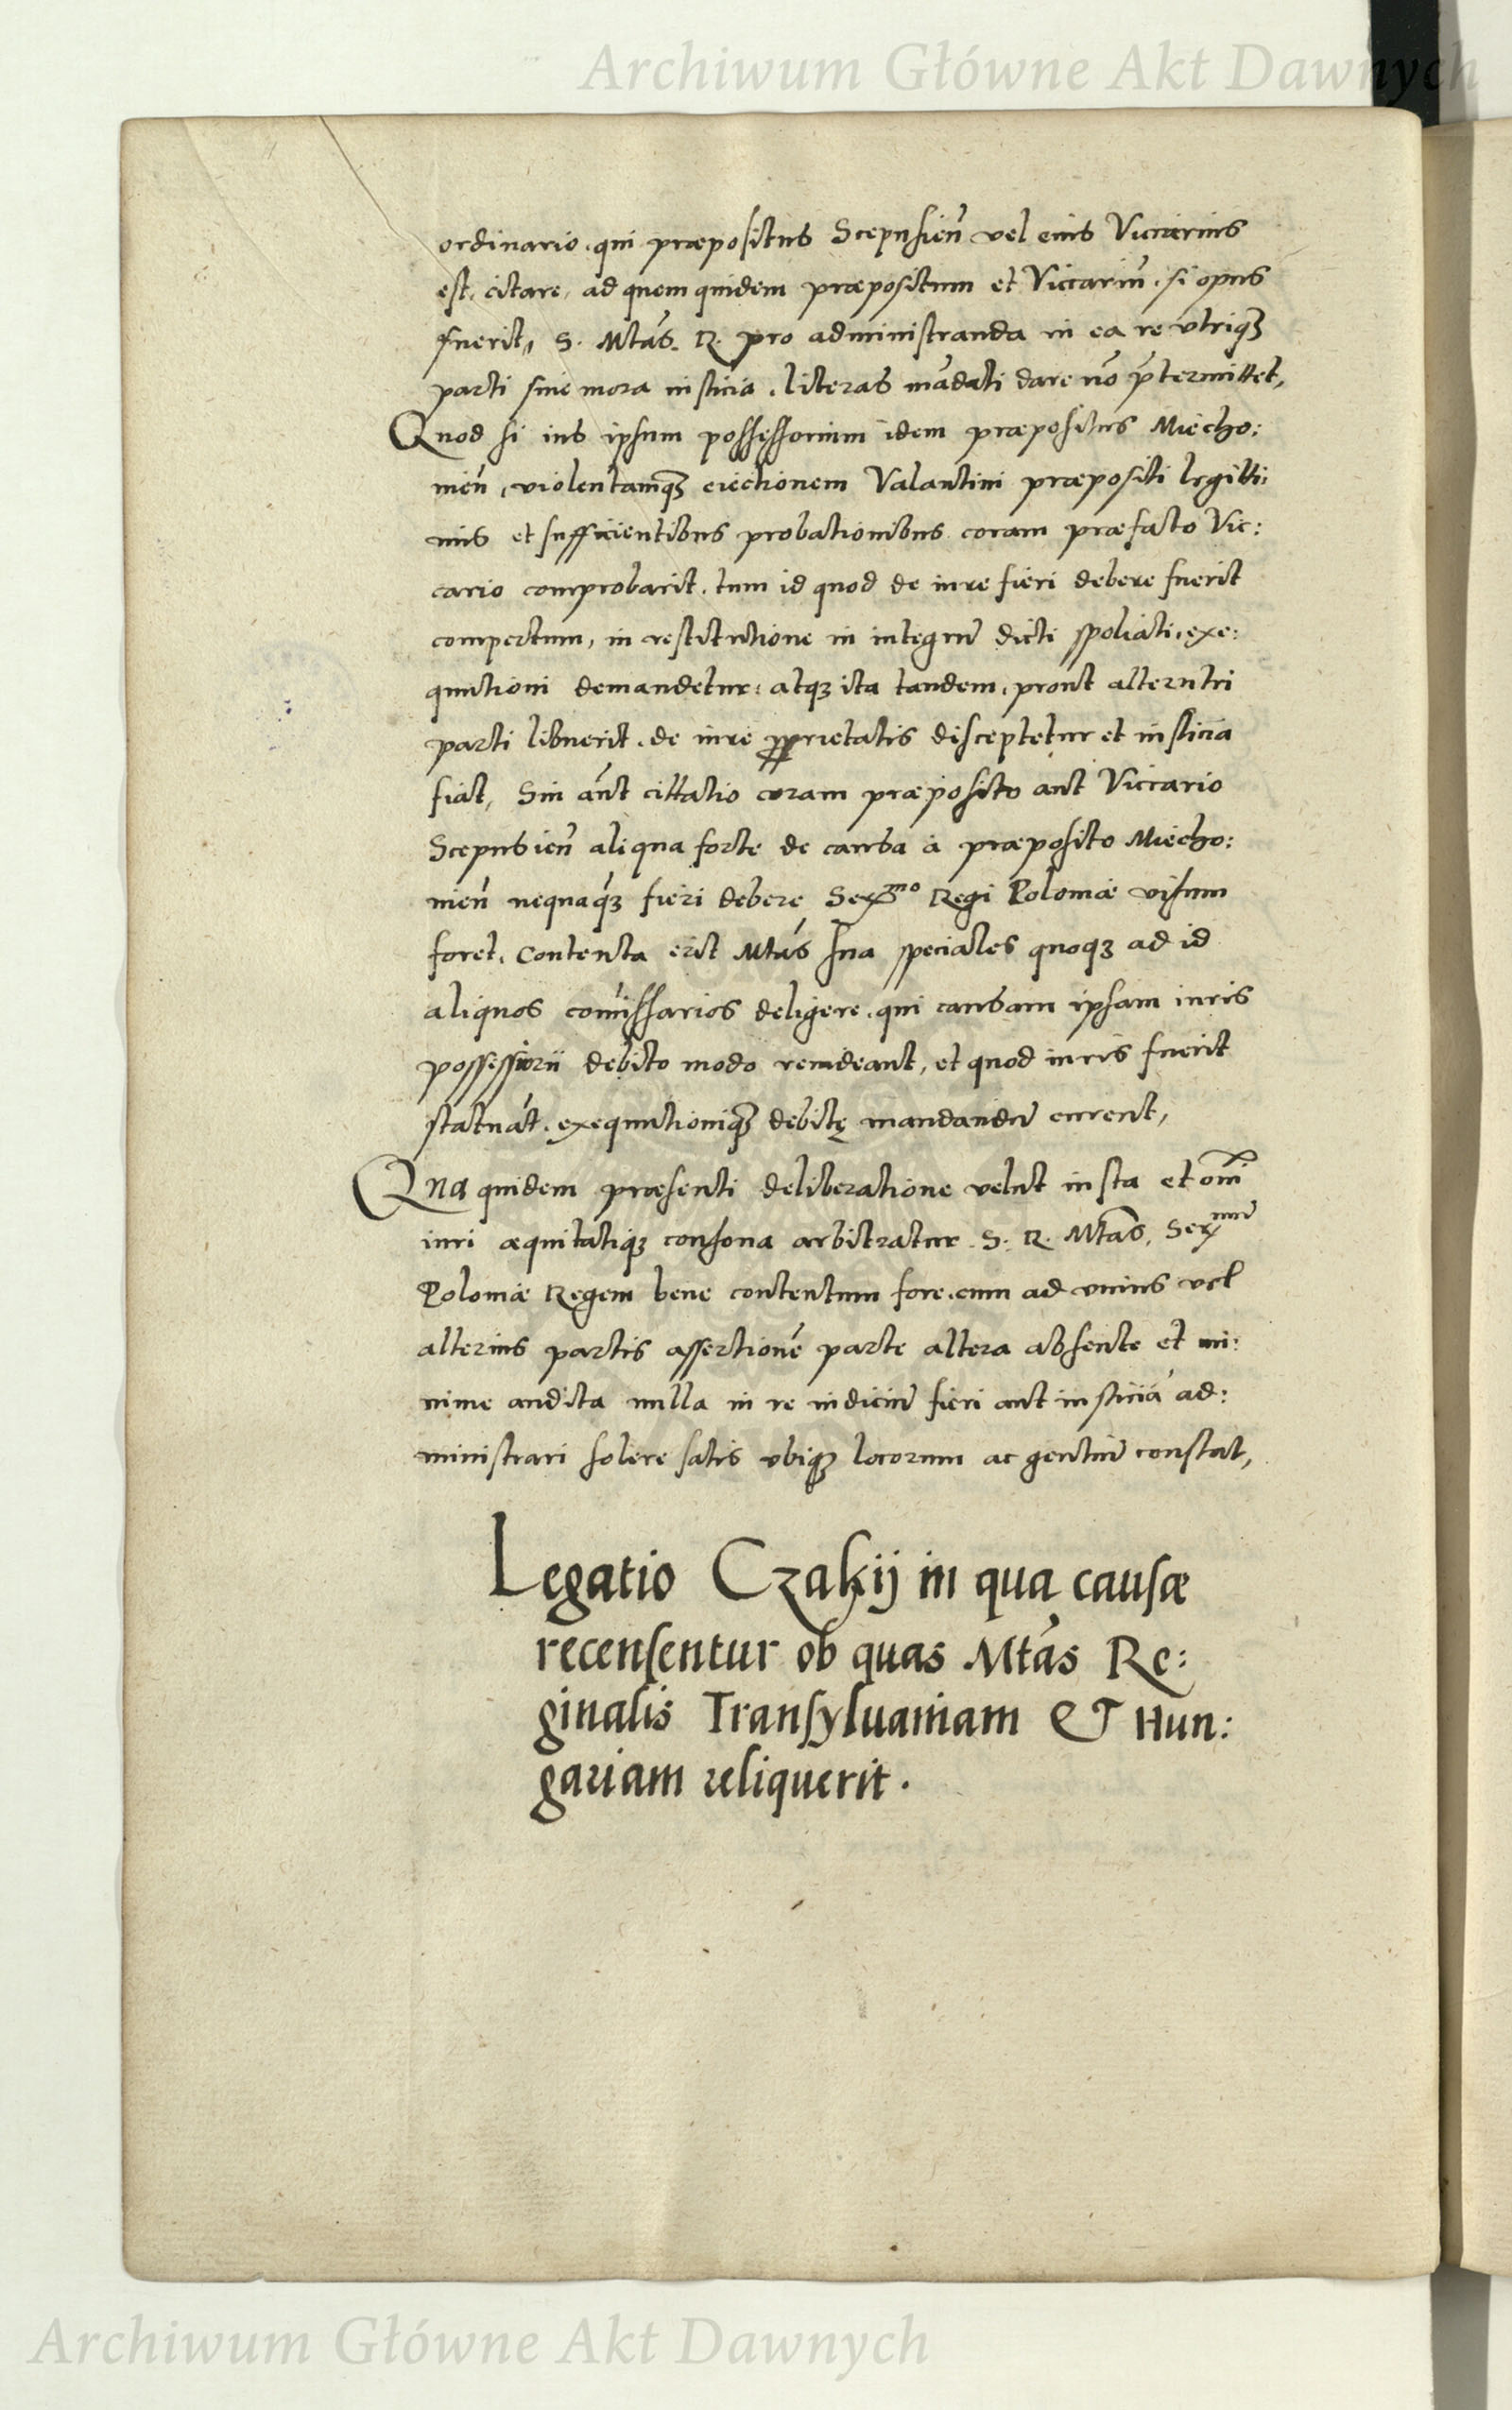 Archiwum Główne Akt Dawnych
ordinario, qui præpositus Scepusieñ vel eius Viccarius
est, citare, ad quem quidem præpositum et Viccariũ, si opus
fuerit, S. Mtás. R. pro administranda in ea re vtriqȝ
parti sine mora iusticia, literas mãdati dare nõ p̃termittet,
Quod si ius ipsum possessorium idem præpositus Miecho:
uieñ, violentamqȝ eiectionem Valantini præpositi legitti:
mis et sufficientibus probationibus coram præfato Vic:
cario comprobarit, tum id quod de iure fieri debere fuerit
compertum, in restitutione in integrũ dicti spoliati, exe:
quutioni demandetur: atqȝ ita tandem, prout alterutri
parti libuerit, de iure ꝓprietatis disceptetur et iusticia
fiat, Sin aũt cittatio coram præposito aut Viccario
Scepusieñ aliqua forte de causa à præposito Miecho:
uieñ nequaq̃ȝ fieri debere Serᵐᵒ Regi Poloniæ visum
foret, Contenta erit Mtás sua speciales quoqȝ ad id
aliquos com̃issarios deligere, qui causam ipsam iuris
possessorii debito modo reuideant, et quod iuris fuerit
statuãt, exequutioniqȝ debitę mandandũ curent,
Qua quidem præsenti deliberatione velut iusta et om̃i
iuri æquitatiqȝ consona arbitratur S. R. Mtás, Serᵐũ
Poloniæ Regem bene contentum fore, cum ad vnius vel
alterius partis assertionẽ parte altera absente et mi:
nime audita nulla in re iudiciũ fieri aut iusticiã ad:
ministrari solere satis vbiqȝ locorum ac gentiũ constat,
Legatio Czakij in qua causæ
recensentur ob quas Mtás Re:
ginalis Transyluaniam & Hun:
gariam reliquerit.
Archiwum Główne Akt Dawnych